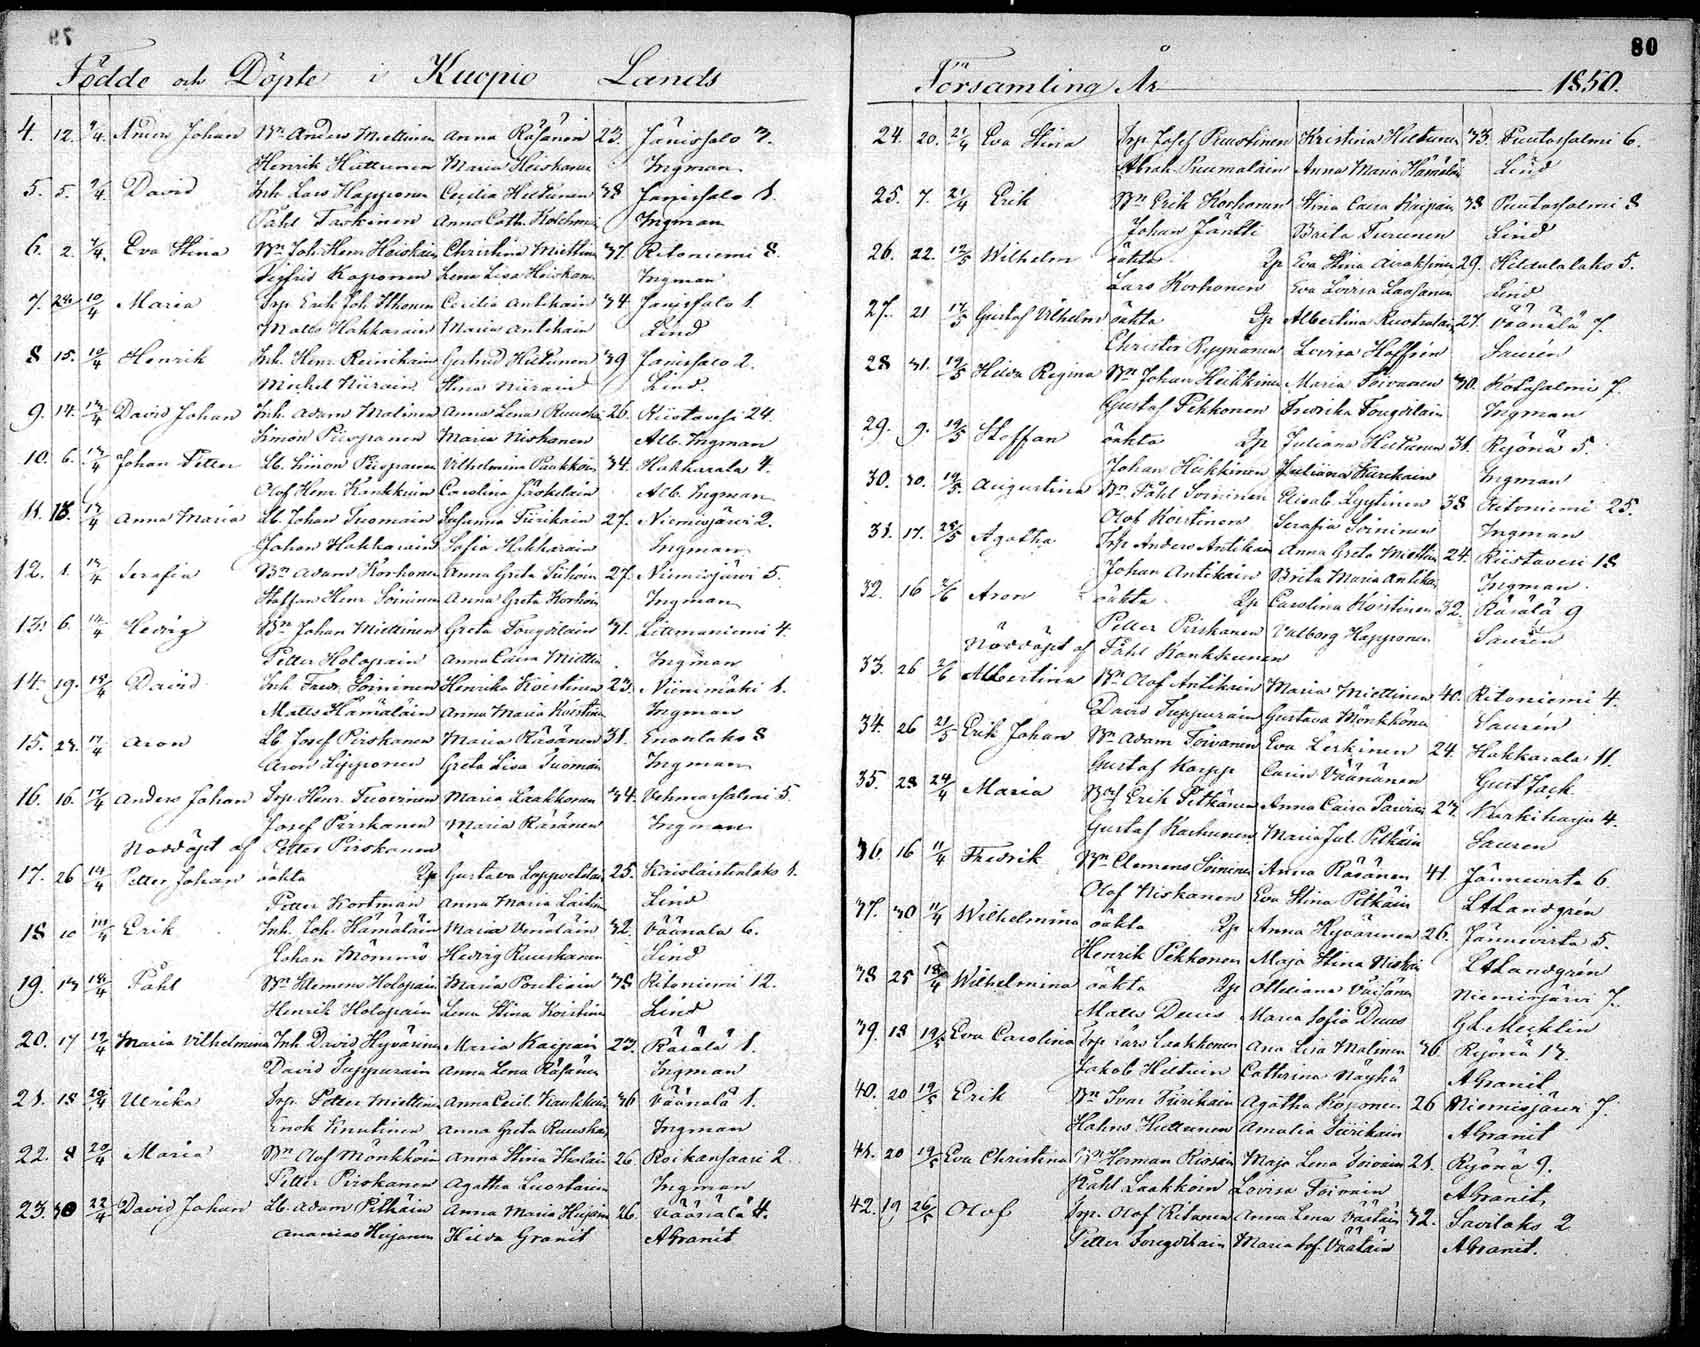 80
Födde och Döpte i Kuopio Lands
4. 12. 9/4. Anders Johan Bn Anders Miettinen Anna Räsänen 23. Jänissalo 3.
Henrik Huttunen Maria Heiskanen Ingman
5. 5. 9/4. David Inh. Lars Happonen Cecilia Hiltunen 38 Janissalo 1.
Påhl Taskinen Anna Cath. Ingman
6. 2. 7/4. Eva Stina Bn Joh. Henr. Heiskain Christina Miettin 37. Ritoniemi 8.
Sigfrid Koponen Lena Lisa Heiskan Ingman
7. 28 10/4 Maria Trp. Erik Joh. Ihonen Cecilia Antikain 34. Janissalo 1.
Matts Hakkarain Maria Antikain Lind
8 15. 10/4 Henrik Inh. Henr. Reinikain Gertrud Hiltunen 39 Janissalo 2.
Michel Niirain Stina Niirain Lind
9. 14. 13/4 David Johan Inh. Adam Malinen Anna Lena Ruuska 26. Riistavesi 24.
Simon Piispanen Maria Niskanen Alb. Ingman
10. 6. 13/4 Johan Petter Lb. Simon Piispanen Vilhelmina Paukkoin 34. Hakkarala 4.
Olof Henr. Karkkuin Carolina Jäskeläin Alb. Ingman
11. 18. 13/4 Anna Maria Lb. Johan Tuomain Susanna Tiirikain 27. Niemisjärvi 2.
Johan Hakkarain Sofia Hakkarain Ingman
12. 1. 13/4 Serafia Bn Adam Korhonen Anna Greta Sihvoin 27. Niemisjärvi 5.
Staffan Henr. Soininen Anna Greta Korhoin Ingman
13. 6. 14/4 Hedvig Bn Johan Miettinen Greta Tougdilain 31. Littmaniemi 4.
Petter Holopain Anna Caisa Miettin Ingman
14. 19. 15/4 David Inh. Fredr. Soininen Henrika Koistinen 23. Niinimäki 1.
Matts Hämäläin Anna Maria Koistin Ingman
15. 27. 17/4 Aron Lb. Josef Pirskanen Maria Räsänen 31. Enonlaks 8
Aron Lipponen Greta Lisa Tuomain Ingman
16. 16. 17/4 Anders Johan Trp. Henr. Tuovinen Maria Laakkonen 34. Vehmassalmi 5.
Josef Pirskanen Maria Räsänen Ingman
Nöddöpt af Petter Pirskanen
17. 26 14/4 Petter Johan oäkta Qp Gustava 25. Kaislastenlaks 1.
Petter Kortman Anna Maria Laitin Lind
18 10 Erik Inh. Joh. Hämäläin Maria Venäläin 32. Väänälä 6.
Johan Mömmö Hedvig Ruuskanen Lind
19. 13 18/4 Påhl Bn Klemens Holopain Maria 38 Ritoniemi 12.
Henrik Holopain Lena Stina Koistinen Lind
20. 17 19/4 Maria Vilhelmina Inh. David Hyvärinen Maria Kaipain 23. Räsälä 1.
David Tuppurain Anna Lena Räsänen Ingman
21. 18 20/4 Ulrika Trp. Petter Miettinen Anna Cecil. 36 Väänälä 1.
Enok Knutinen Anna Greta Ruuskan Ingman
22. 8 20/4 Maria Bn Olof Mönkköin Anna Stina 26 Roikansaari 2.
Petter Pirskanen Agatha Luostarin Ingman
23. 30 22/4 David Johan Lb. Adam Pitkäin Anna Maria Hujain 26. Väänälä 4.
Ananias Hujanen Hilda Granit AGranit
80
Församling År 1850.
24. 20. 21/4 Eva Stina Trp Josef Puustinen Kristina Hiltunen 33. Puutossalmi 6.
Abrah Puumalain Anna Maria Hämäläi Lind
25. 7. 21/4 Erik Bn Erik Korhonen Stina Caisa Kaipain 38 Puutossalmi 8
Johan Jäntti Brita Turunen Lind
26. 22. 12/5 Wilhelm oäkta Qp Eva Stina 29. Hiltulalaks 5.
Lars Korhonen Eva Lovisa Laasanen Lind
27. 21 17/5 Gustaf Vilhelm oäkta Qp Albertina Ruotsalain 27. Väänälä 7.
Christer Ryynänen Lovisa Hoffrén Saurén
28 31. 19/5 Hilda Regina Bn Johan Heikkinen Maria Toivanen 30. Kotasalmi 7.
Gustaf Pekkonen Fredrika Tougdilain Ingman
29. 9. 19/5 Staffan oäkta Qp Juliana Hiltunen 31. Ryönä 5.
Johan Heikkinen Juliana Kurikain Ingman
30. 30. 19/5. Augustina Bn Påhl Soininen Elisab. Lyytinen 38 Ritoniemi 25.
Olof Koistinen Serafia Soininen Ingman
31. 17. 28/5 Agatha Trp Anders Antikain Anna Greta Miettin 24. Riistavesi 18
Johan Antikain Brita Maria Antikai Ingman
32. 16 2/6 Aron oäkta Qp Carolina Koistinen 32. Räsälä 9
Petter Pirskanen Valborg Happonen Saurén
Nöddöpt af Påhl Konkkunen
33. 26 2/6 Albertina Bn Olof Antikain Maria Miettinen 40. Ritoniemi 4.
David Tuppurain Gustava Mönkkönen Saurén
34. 26 21/5 Erik Johan Bn Adam Toivanen Eva Leskinen 24. Hakkarala 11.
Gustaf Karpp Carin Väänänen Gust Jack
35. 28 24/4 Maria Erik Pitkänen Anna Caisa 27. Kurkiharju 4.
Gustaf Karhunen Maria Jul. Pitkäin Sauren
36. 16 11/4 Fredrik Bn Clemens Soininen Anna Räsänen 41. Jännevirta 6.
Olof Niskanen Eva Stina Pitkäin LALandgrén
37. 30 11/4 Wilhelmina oäkta Qp Anna Hyvärinen 26. Jännevirta 5.
Henrik Pekkonen Maja Stina Niskai LALandgrén
38 25 18/4 Wilhelmina oäkta Qp Ottiliana Väisänen Niemisjärvi 7.
Matts Ducus Maria Sofia Ducus Gl. Mecklin
39. 18 19/5 Eva Carolina Trp Lars Laakkonen Ana Lisa Malinen 36. Ryönä 13.
Jakob Hiltuin Cathrina Näykä AGranit
40. 20 19/5 Erik Bn Ivar Tiirikain Agatha Koponen 26 Niemisjärvi 7.
Hahns Huttunen Amalia Tiirikain AGranit
41. 20 19/5 Eva Christina Bn Herman Maja Lena Toivain 21. Ryönä 9.
Påhl Laakkoin Lovisa Toivain AGranit
42. 19 26/5 Olof Trp. Olof Ritanen Anna Lena Väätäin 32. Savilaks 2
Petter Tougdilain Maria Sof. Väätäin AGranit.